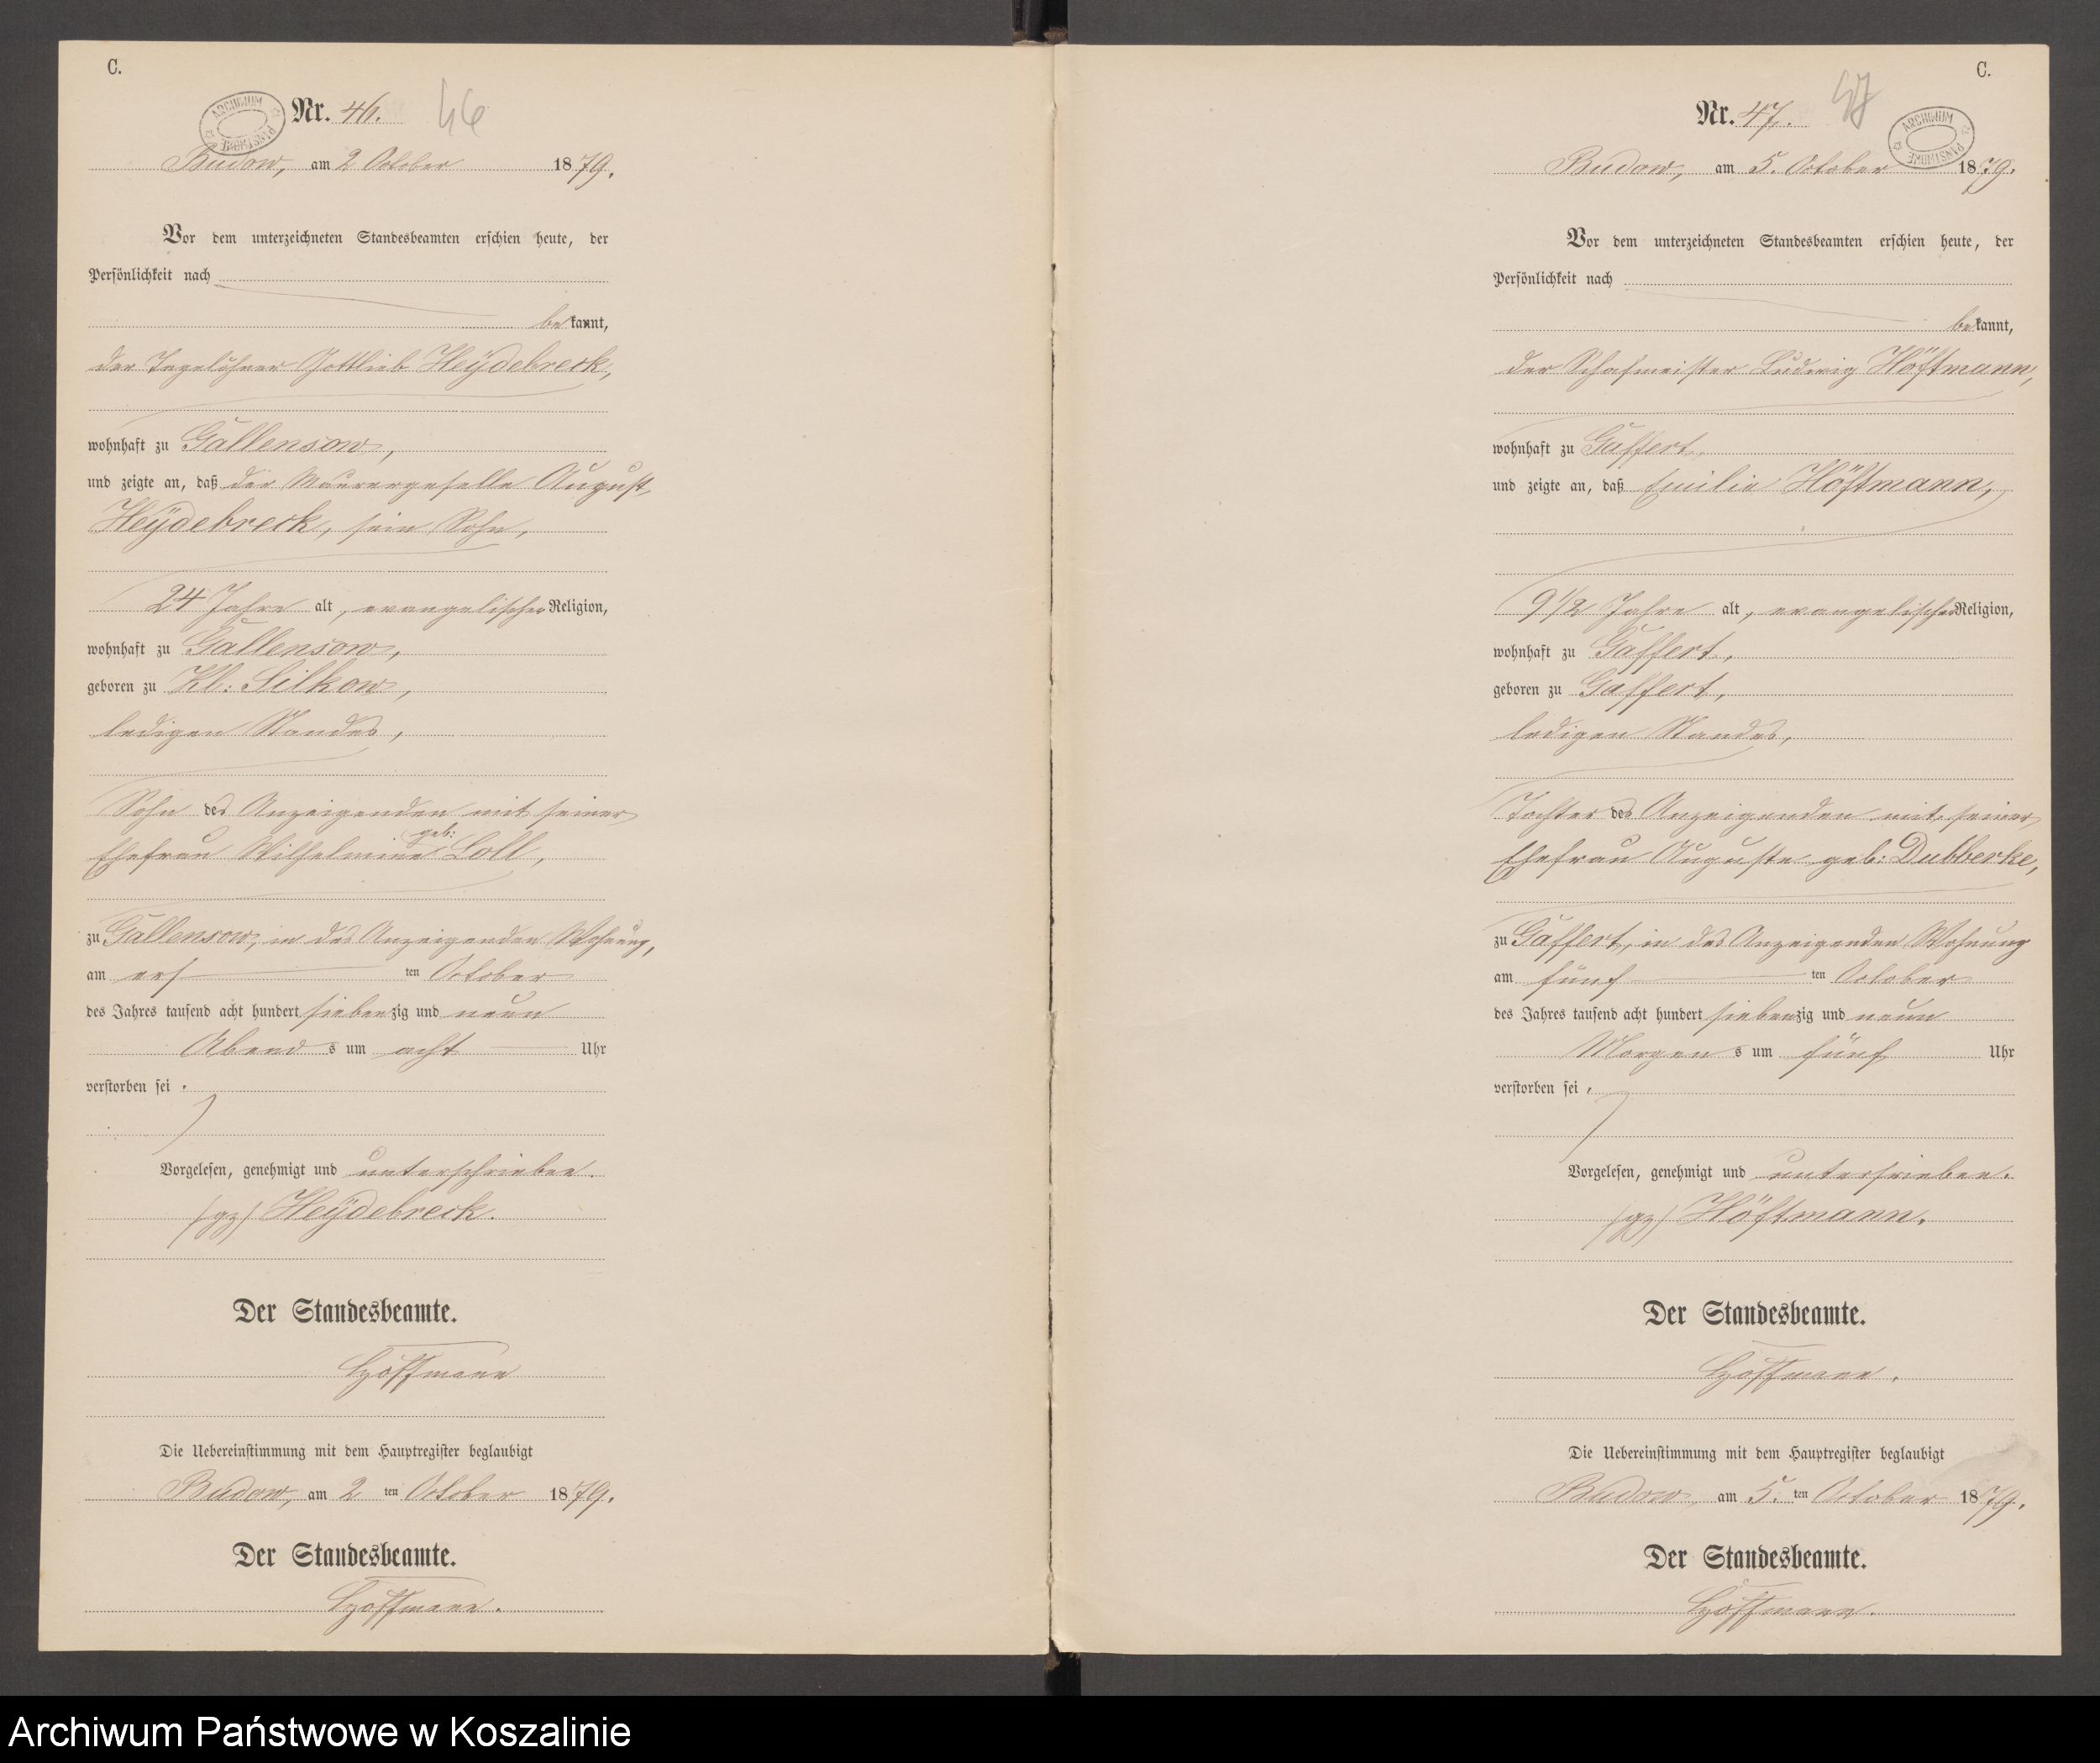 C.
ARCHIWUM PAŃSTWOWE
Nr. 46. 46
Budow, am 2 October 1879.
Vor dem unterzeichneten Standesbeamten erschien heute, der
Persönlichkeit nach
bekannt,
der Tagelöhner Gottlieb Heÿdebreck,
wohnhaft zu Gallensow,
und zeigte an, daß der Maurergeselle August
Heÿdebreck, sein Sohn,
24 Jahre alt, evangelischer Religion,
wohnhaft zu Gallensow,
geboren zu Kl: Silkow,
ledigen Standes,
Sohn des Anzeigenden mit seiner
geb:
Ehefrau Wilhelmine Loll,
zu Gallensow, in des Anzeigenden Wohnung,
am ers ten October
des Jahres tausend acht hundert siebenzig und neun
Abends um acht Uhr
verstorben sei.
Vorgelesen, genehmigt und unterschrieben.
(gz) Heÿdebreck.
Der Standesbeamte.
Hoffmann
Die Uebereinstimmung mit dem Hauptregister beglaubigt
Budow, am 2 ten October 1879.
Der Standesbeamte.
Hoffmann.
C.
Nr. 47. 47
ARCHIWUM PAŃSTWOWE
Budow, am 5. October 1879.
Vor dem unterzeichneten Standesbeamten erschien heute, der
Persönlichkeit nach
bekannt,
der Schafmeister Ludwig Höftmann,
wohnhaft zu Gaffert,
und zeigte an, daß Emilie Höftmann,
9 1/2 Jahre alt, evangelischer Religion,
wohnhaft zu Gaffert,
geboren zu Gaffert,
ledigen Standes,
Tochter des Anzeigenden mit seiner
Ehefrau Auguste geb: Dubberke,
zu Gaffert, in des Anzeigenden Wohnung
am fünf ten October
des Jahres tausend acht hundert siebenzig und neun
Morgens um fünf Uhr
verstorben sei,
Vorgelesen, genehmigt und unterschrieben.
(gz) Höftmann.
Der Standesbeamte.
Hoffmann.
Die Uebereinstimmung mit dem Hauptregister beglaubigt
Budow am 5. ten October 1879.
Der Standesbeamte.
Hoffmann.
Archiwum Państwowe w Koszalinie